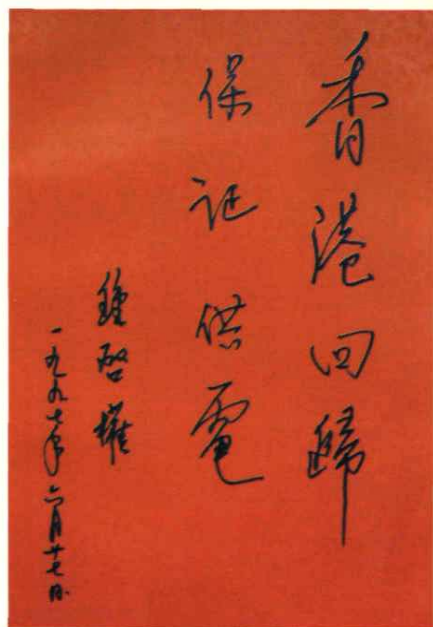 香港回歸
保证供電
鍾啓權
一九九七年六月廿七日